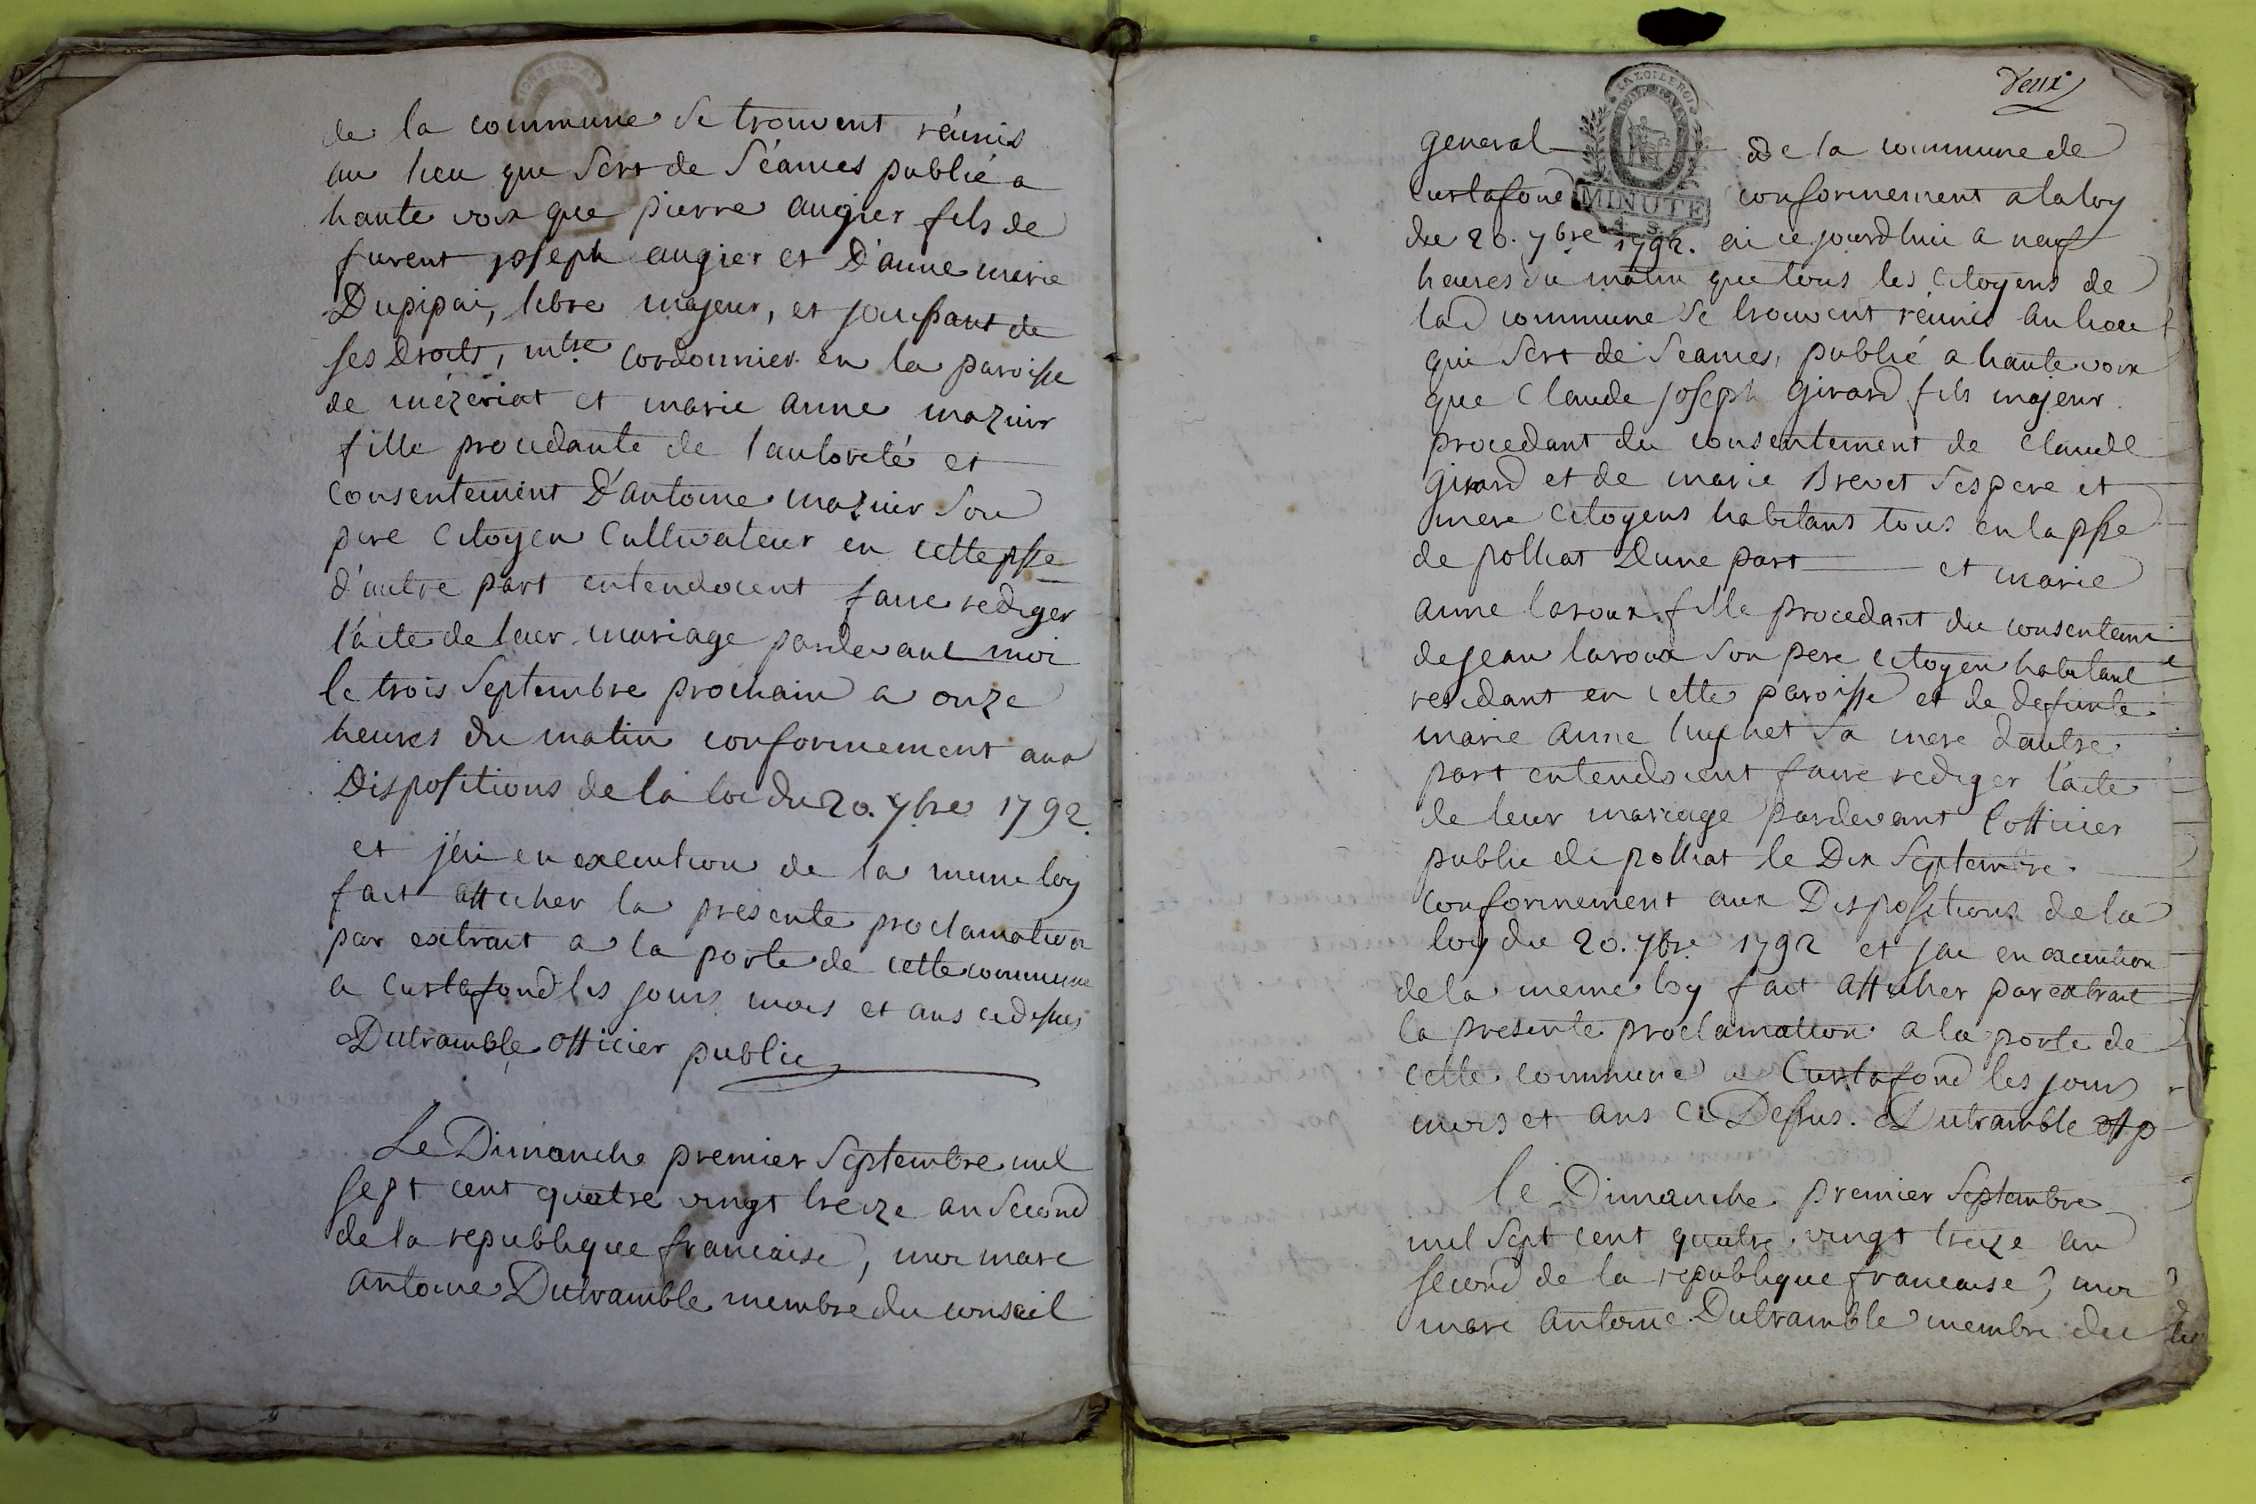 de la commune se trouvent réunis
au lieu que sert de séances publié a
haute voix que pierre augier fils de
furent joseph augier et D'anne marie
Dupipai, libre majeur, et jouissant de
ses Droits, mtre cordonnier en la paroisse
de mézériat et marie anne mazuir
fille procedante de l'autorité et
consentement D'antoine mazuir son
pere citoyen cultivateur en cette psse
d'autre part entendoient faire rediger
l'acte de leur mariage pardevant moi
le trois septembre prochain a onze
heures du matin conformement aux
Dispositions de la loi du 20. 7bre 1792.
et j'ai en execution de la meme loy
fait afficher la presente proclamation
par extrait a la porte de cette commune
a curtafond les jours mois et ans cidessus
Dutramble officier public
Le Dimanche premier septembre mil
sept cent quatre vingt treize an second
de la republique francaise, moi marc
antoine Dutramble membre du conseil
Deux
general de la commune de
curtafond conformement a la loy
du 20. 7bre 1792. ai ce jourdhui a neuf
heures du matin que tous les citoyens de
lad commune se trouvent réunis au lieu
qui sert de seances, publié a haute voix
que claude joseph girard fils majeur
procedant du consentement de claude
girard et de marie Brevet ses pere et
mere citoyens habitans tous en la psse
de polliat Dune part et marie
anne laroux fille procedant du consentem
de jean laroux son pere citoyen habitant
residant en cette paroisse et de defunte
marie anne huchet sa mere dautre
part entendoient faire rediger l'acte
de leur mariage pardevant l'officier
public de polliat le Dix septembre
conformement aux Dispositions de la
loy du 20. 7bre 1792 et jai en execution
de la meme loy fait afficher par extrait
la presente proclamation a la porte de
cette commune a Curtafond les jours
mois et ans ci Dessus. Dutramble off p
le Dimanche premier septembre
mil sept cent quatre vingt treize an
second de la republique francaise, moi
marc antoine Dutramble membre du
MINUTE
4 S.